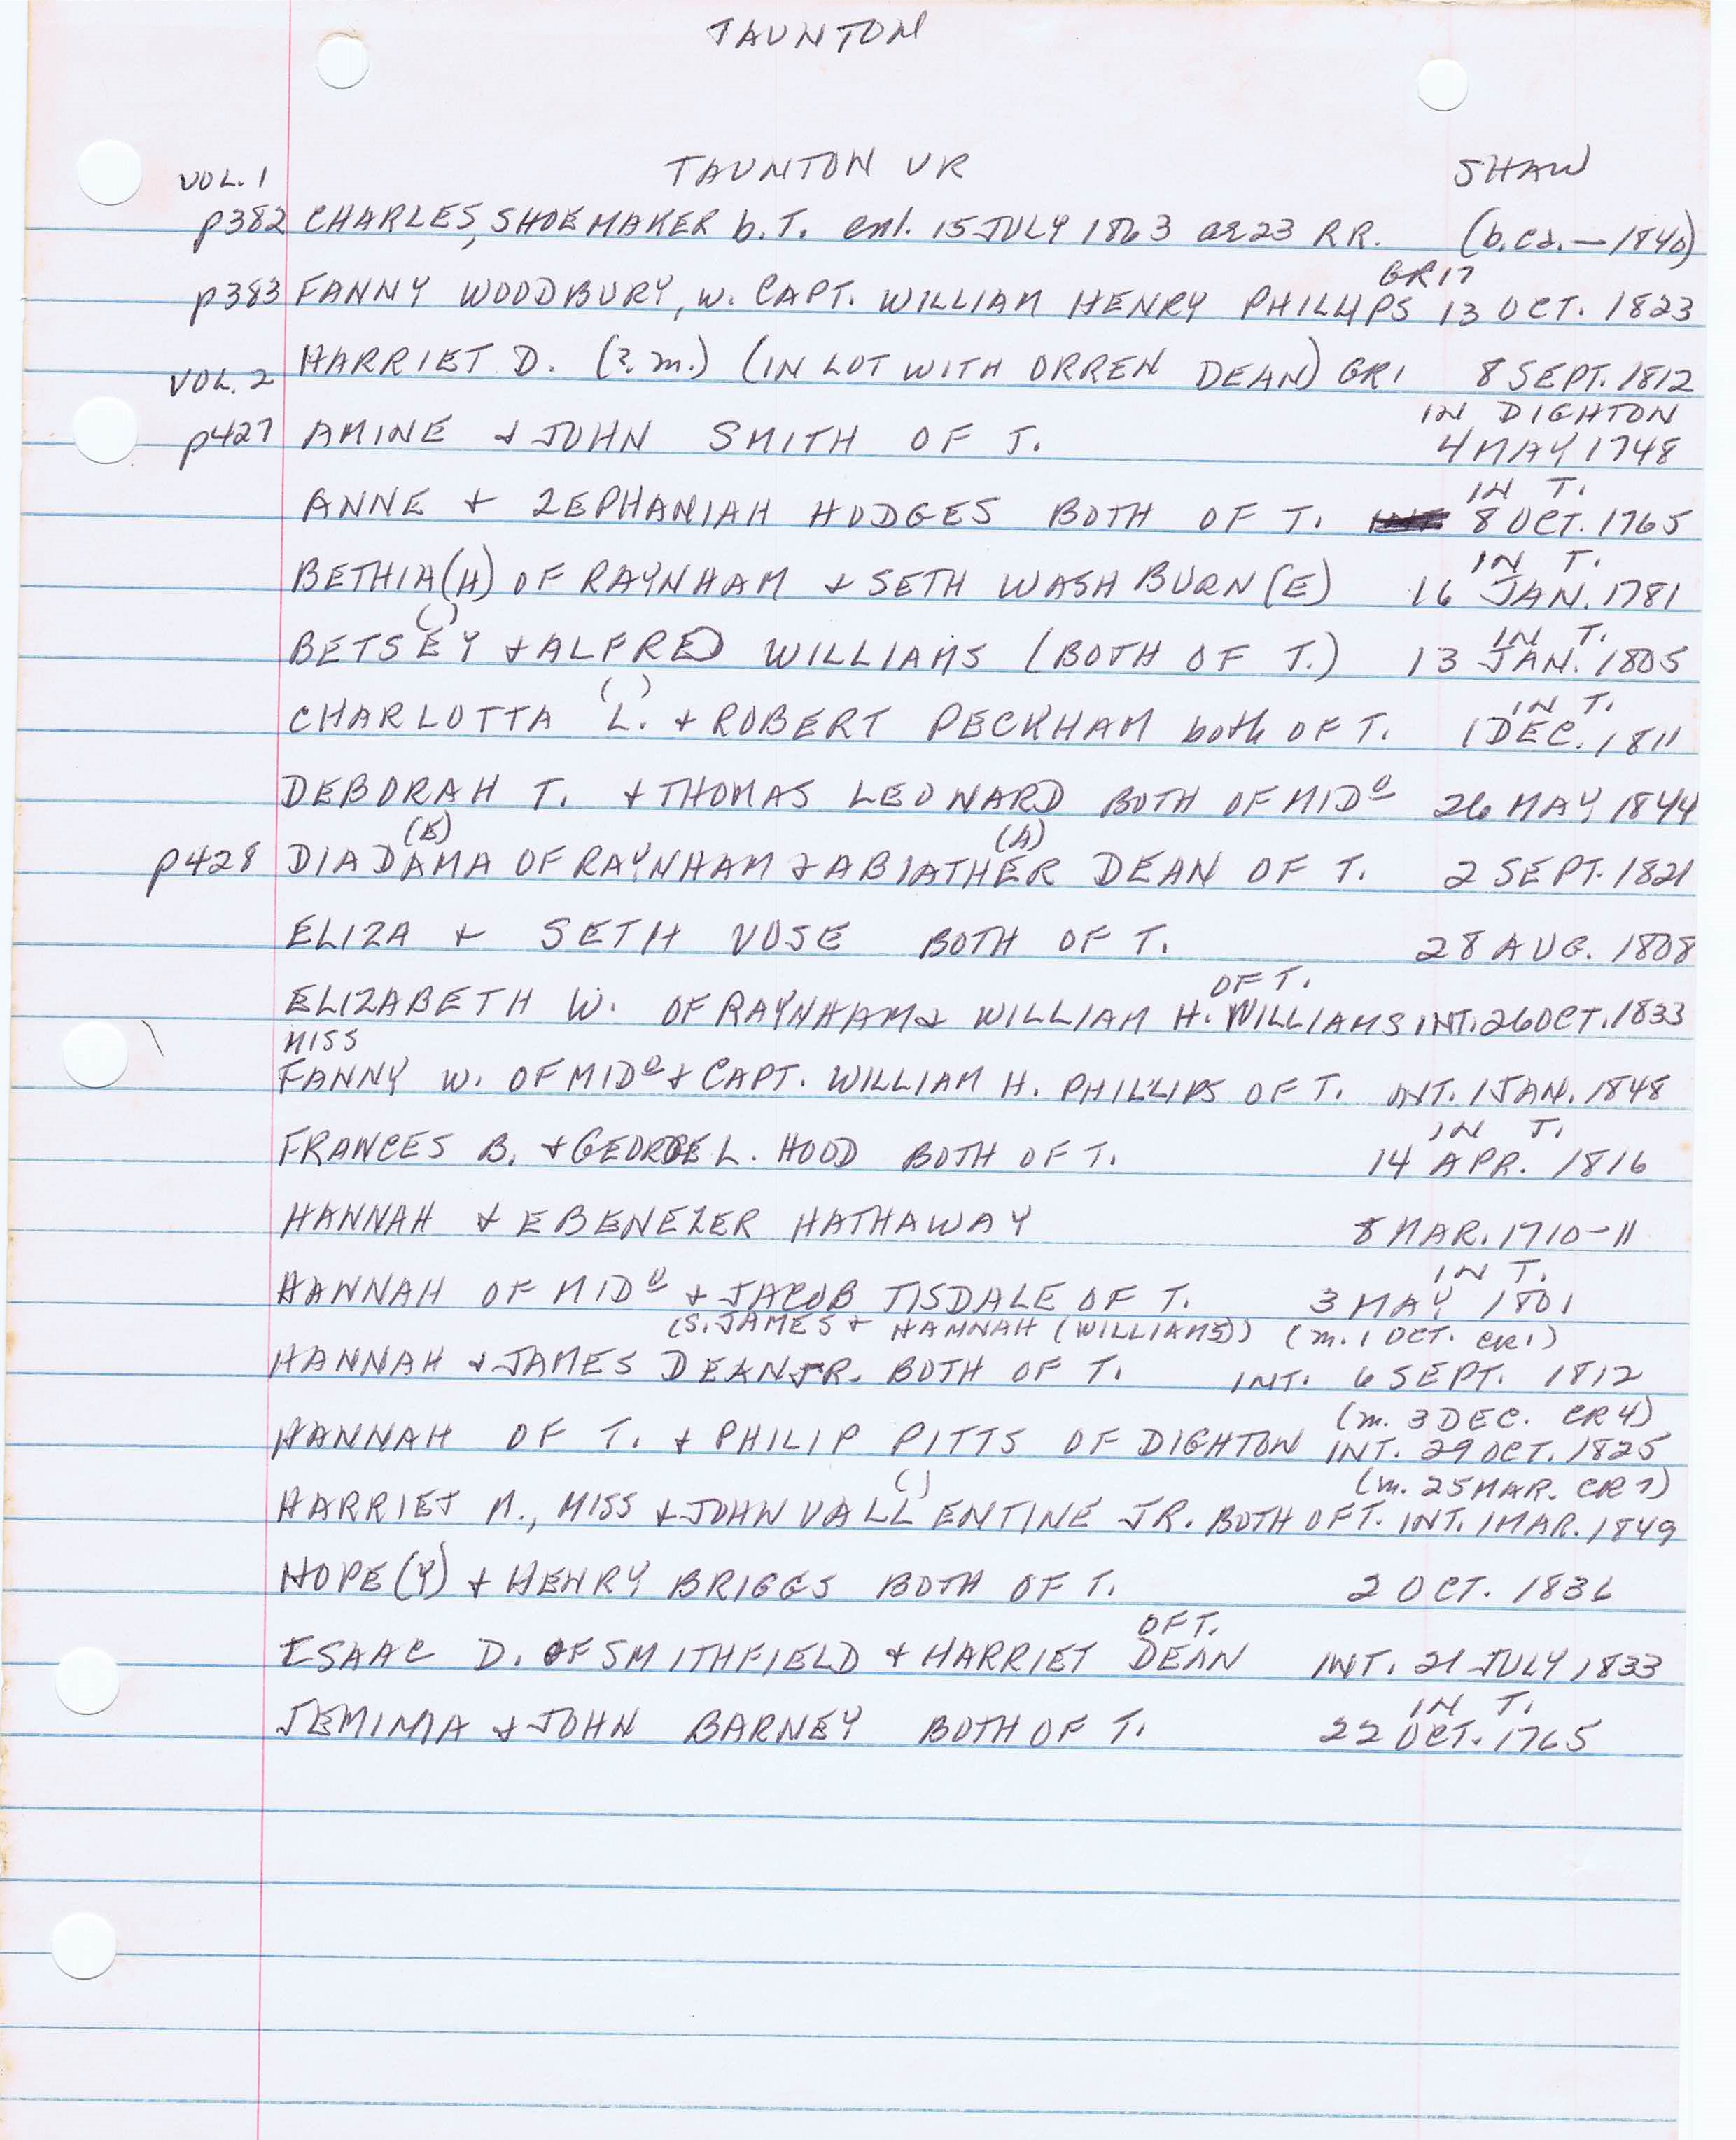 TAUNTON
VOL. 1 TAUNTON VR SHAW
p382 CHARLES, SHOEMAKER b. T. enl. 15 JULY 1863 ae 23 RR. (b. ca. — 1840)
GR17
p383 FANNY WOODBURY, w. CAPT. WILLIAM HENRY PHILLIPS 13 OCT. 1823
HARRIET D. (?. m.) (IN LOT WITH ORREN DEAN) GR1 8 SEPT. 1812
VOL. 2
IN DIGHTON
p427 AMINE + JOHN SMITH OF T. 4 MAY 1748
IN T.
ANNE + ZEPHANIAH HODGES BOTH OF T. 8 OCT. 1765
IN T.
BETHIA(H) OF RAYNHAM + SETH WASHBURN(E) 16 JAN. 1781
( ) IN T.
BETSEY + ALFRED WILLIAMS (BOTH OF T.) 13 JAN. 1805
( ) IN T.
CHARLOTTA L. + ROBERT PECKHAM both OF T. 1 DEC. 1811
DEBORAH T. + THOMAS LEONARD BOTH OF MIDᵉ 26 MAY 1844
(E) (A)
p428 DIADAMA OF RAYNHAM + ABIATHER DEAN OF T. 2 SEPT. 1821
ELIZA + SETH VOSE BOTH OF T. 28 AUG. 1808
OF T.
ELIZABETH W. OF RAYNHAM + WILLIAM H. WILLIAMS INT. 26 OCT. 1833
MISS
FANNY W. OF MIDᵉ + CAPT. WILLIAM H. PHILLIPS OF T. INT. 1 JAN. 1848
IN T.
FRANCES B. + GEORGE L. HOOD BOTH OF T. 14 APR. 1816
HANNAH + EBENEZER HATHAWAY 8 MAR. 1710-11
IN T.
HANNAH OF MIDᵉ + JACOB TISDALE OF T. 3 MAY 1801
(S. JAMES + HANNAH (WILLIAMS)) (m. 1 OCT. CR1)
HANNAH + JAMES DEAN JR. BOTH OF T. INT. 6 SEPT. 1812
(m. 3 DEC. CR4)
HANNAH OF T. + PHILIP PITTS OF DIGHTON INT. 29 OCT. 1825
( ) (m. 25 MAR. CR7)
HARRIET M., MISS + JOHN VALLENTINE JR. BOTH OF T. INT. 1 MAR. 1849
HOPE(Y) + HENRY BRIGGS BOTH OF T. 2 OCT. 1836
OF T.
ISAAC D. OF SMITHFIELD + HARRIET DEAN INT. 21 JULY 1833
IN T.
JEMIMA + JOHN BARNEY BOTH OF T. 22 OCT. 1765